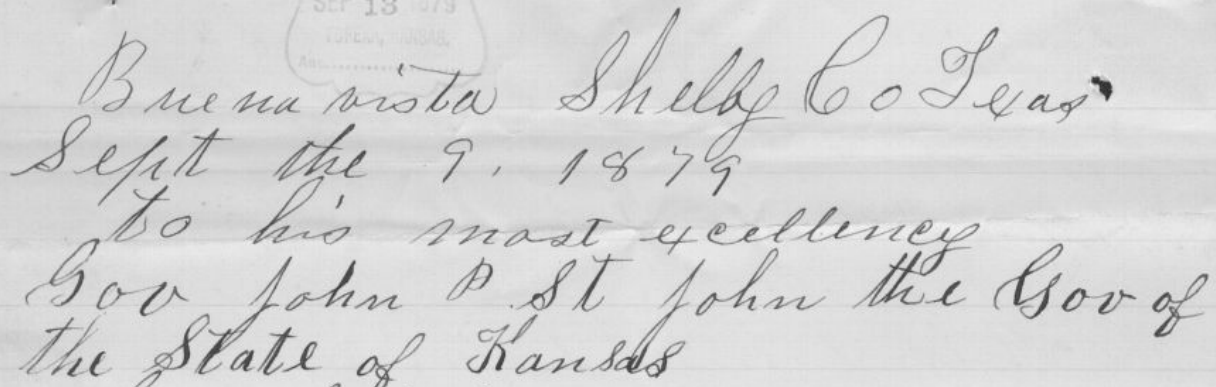 SEP 13 1879
TOPEKA, KANSAS.
Buena vista Shelby Co Texas
Sept the 9. 1879
to his most excellency
Gov john P St john the Gov of
the State of Kansas